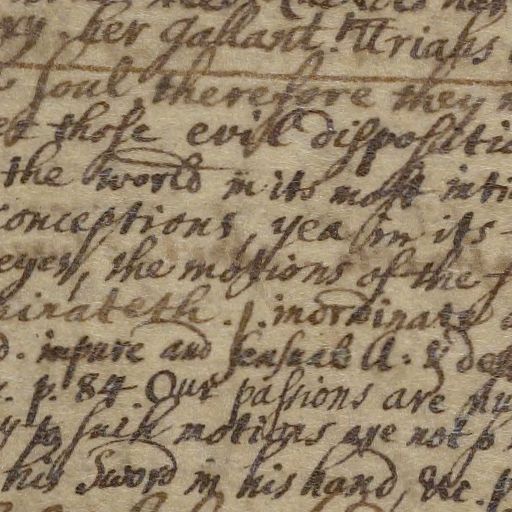 her gallant. Uriahs
soul, therefore they
those evil dispositi
the world in its most inti
conceptions, yea in its
eyes, the motions of the
inateth. p. inordinate
impure and sensual A. & de
p. 84 Our passions are
to such motions are not p
his Sword in his hand, &c. p